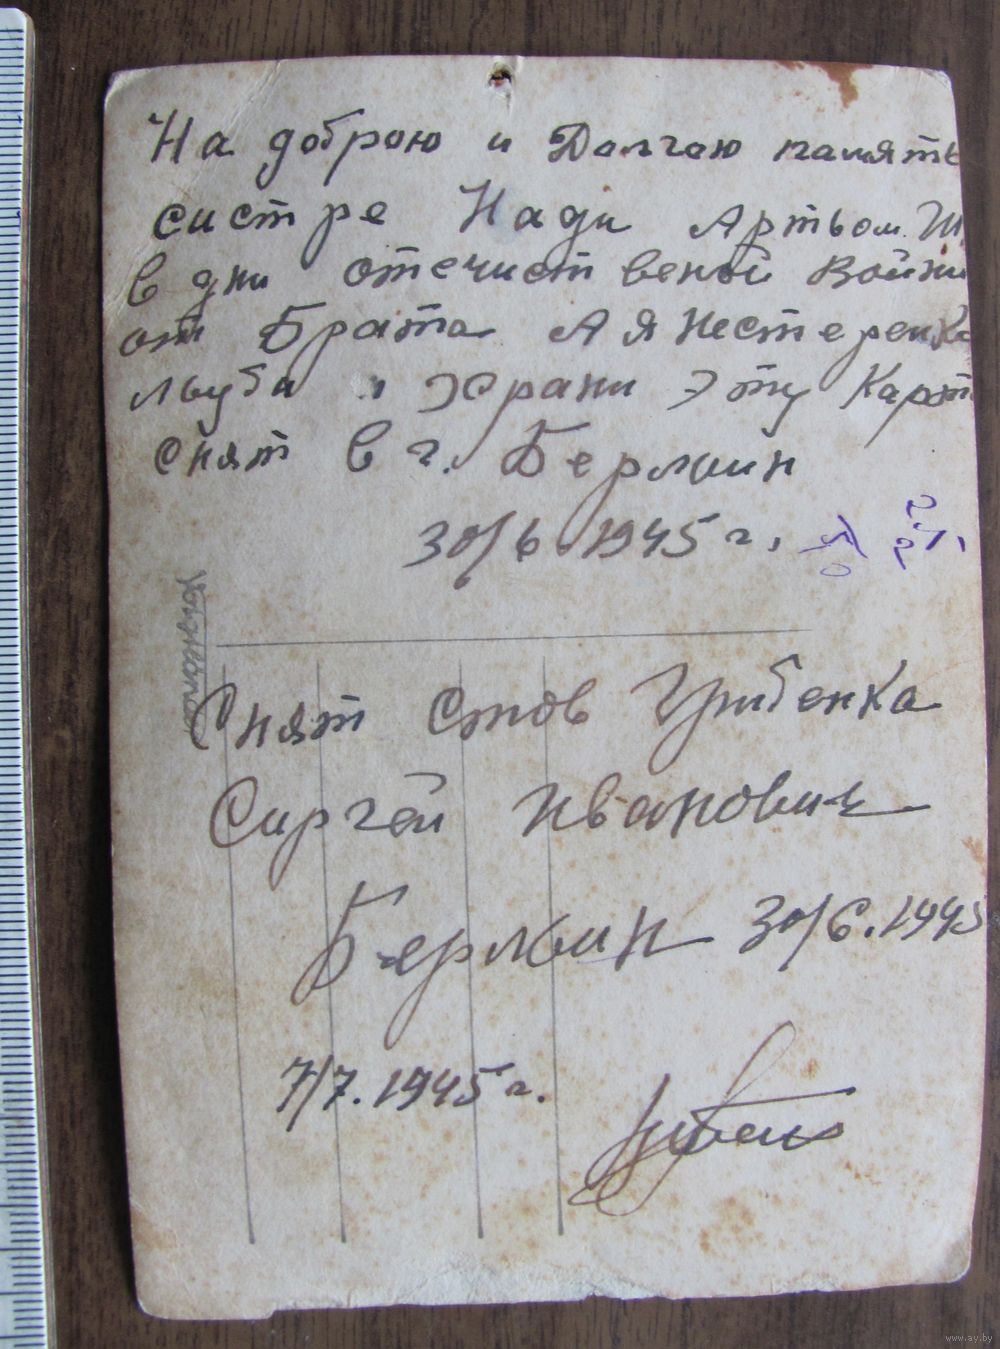 На доброю и Долгою память
систре Нади Артьом. Ш
в дни отечиственой Войни
от Брата А Я Нестеренка
льуби и Храни Эту Карт
снят в г. Берлин
30/6. 1945 г.
Снят стов Грибенка
Сиргей Иванович
Берлин 30/6. 1945
7/7. 1945 г.
www.ay.by